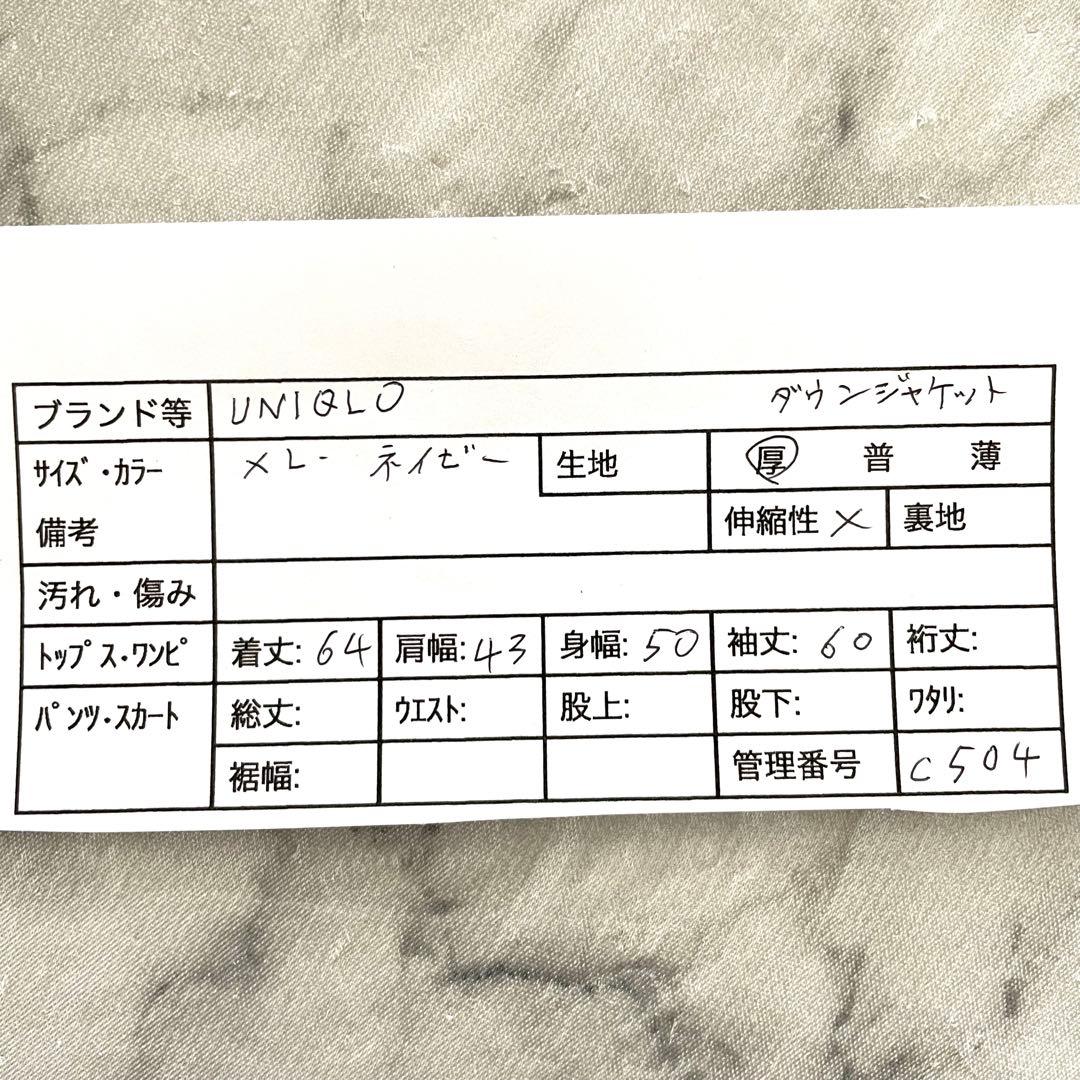 ブランド等 UNIQLO ダウンジャケット
サイズ・カラー XL- ネイビー 生地 厚 普 薄
備考 伸縮性 × 裏地
汚れ・傷み
トップス・ワンピ 着丈: 64 肩幅: 43 身幅: 50 袖丈: 60 裄丈:
パンツ・スカート 総丈: ウエスト: 股上: 股下: ワタリ:
裾幅: 管理番号 C504